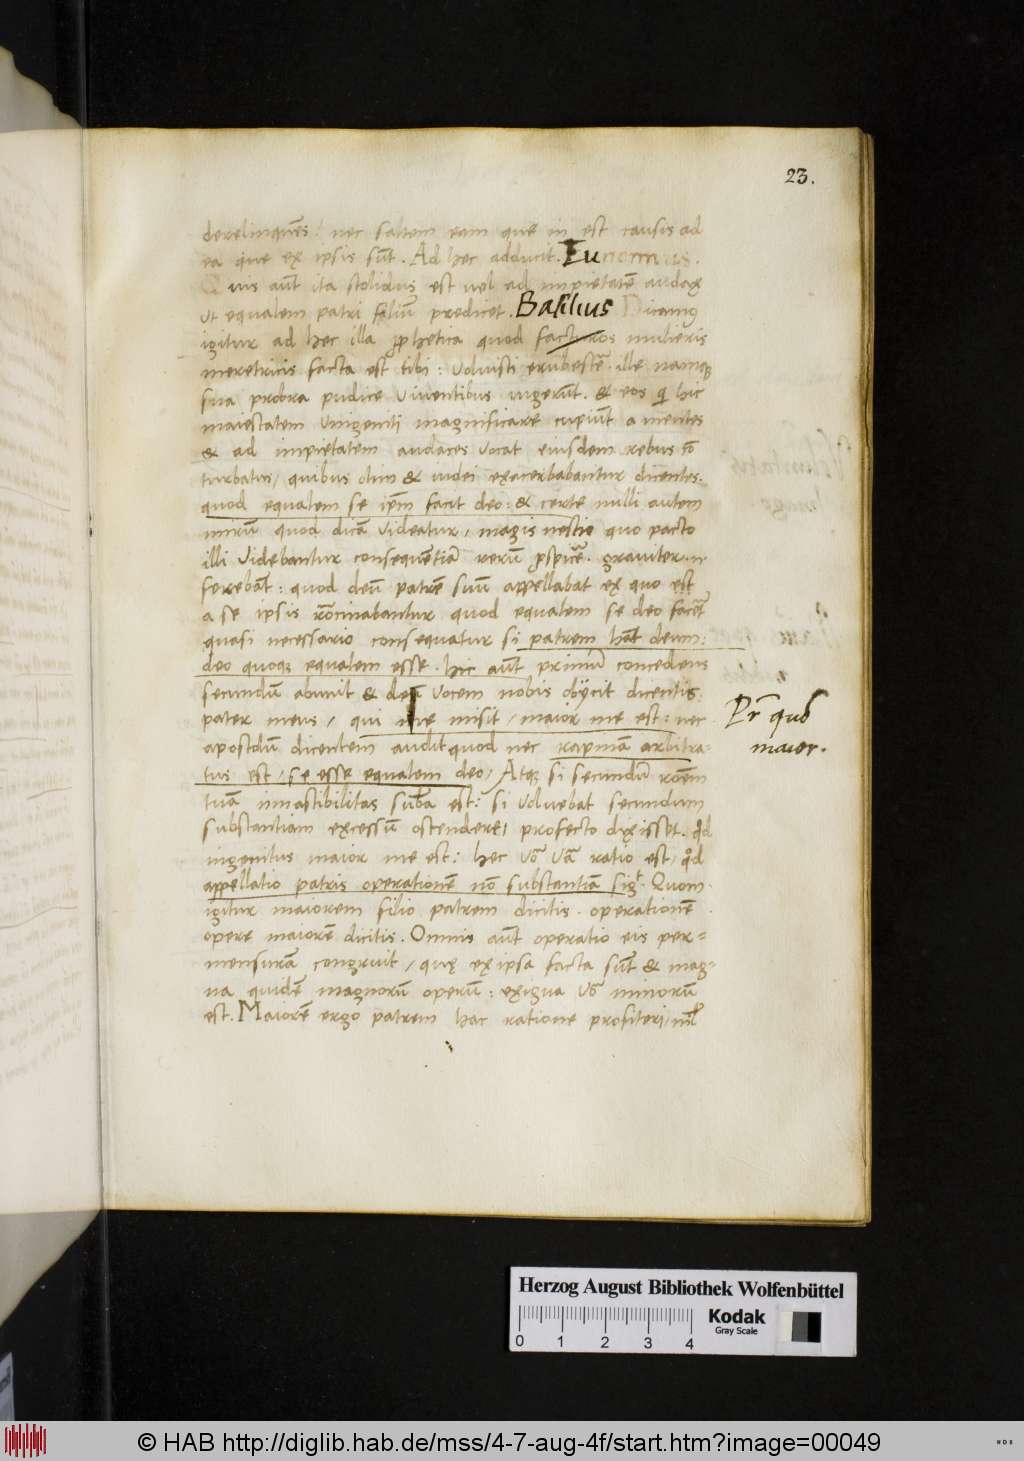 23.
derelinquẽs! nec saltem eam que in est causis ad
ea que ex ipsis sũt. Ad hec adducit. Eunomius.
Quis aũt ita stolidus est vel ad impietatẽ audax
ut equalem patri filiũ predicet. Basilius Dicamus
igitur ad hec illa prophetica quod facturos mulieris
meretricis facta est tibi: voluisti erubescẽ. ille namq;
sua probra pudice viventibus ingerũt. & eos qui hic
maiestatem unigeniti magnificare cupiũt amentes
& ad impietatem audaces vocat eiusdem rebus cõ
turbatus, quibus olim & iudei exacerbabantur dicentes.
quod equalem se ipm̃ facit deo: & certe nulli autem
mirũ quod dicã videatur, magis nestio quo pacto
illi videbantur consequentiã rerũ perspicẽ. graviter n.
ferebãt: quod deũ patrẽ suũ appellabat ex quo est
a se ipsis rõcinabantur quod equalem se deo facẽt
quasi necessario consequatur si patrem hãt deum:
deo quoq; equalem esse. hic aũt primũ concedens
secundũ abnuit & deũ vocem nobis obijcit dicentis.
pater meus, qui me misit, maior me est: nec
apostolũ dicentem audit quod nec rapinã arbitra-
tus est, se esse equalem deo, Atq; si secundũ rõem
tuã inmastibilitas suba est: si voluebat secundum
substantiam excessũ ostendere, profecto dixisset. qd
ingenitus maior me est: hec võ vã ratio est, qd
appellatio patris operationẽ nõ substantiam sigt. Quom
igitur maiorem filio patrem dicitis. operationẽ
opere maiorẽ dicitis. Omnis aũt operatio eis per=
mensurã congruit, quę ex ipsa facta sũt & mag-
na quidẽ magnorũ operũ: exigua võ minorũ
est. Maiorẽ ergo patrem hac ratione profiteri,
Pr̃ quo
maior.
Herzog August Bibliothek Wolfenbüttel
0 1 2 3 4
Kodak
Gray Scale
© HAB http://diglib.hab.de/mss/4-7-aug-4f/start.htm?image=00049